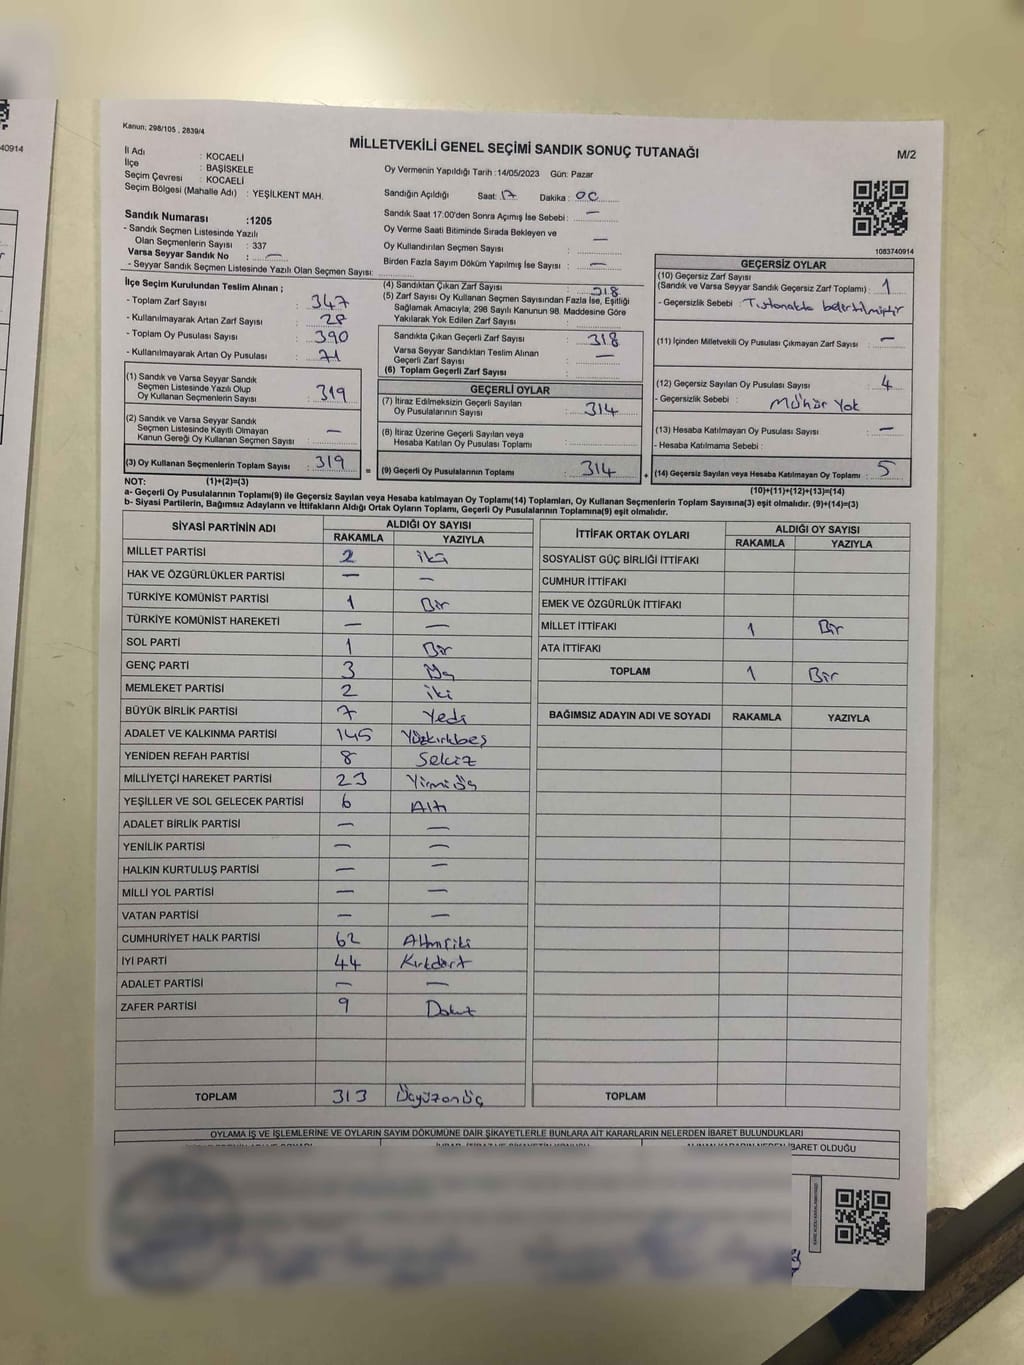 40914
Kanun, 298/105 , 2839/4
MİLLETVEKİLİ GENEL SEÇİMİ SANDIK SONUÇ TUTANAĞI
M/2
İl Adı : KOCAELİ
İlçe : BAŞİSKELE
Seçim Çevresi : KOCAELİ
Seçim Bölgesi (Mahalle Adı) : YEŞİLKENT MAH.
Oy Vermenin Yapıldığı Tarih :14/05/2023 Gün: Pazar
Sandığın Açıldığı Saat: 17 Dakika: 00
Sandık Saat 17.00'den Sonra Açılmış İse Sebebi : —
Oy Verme Saati Bitiminde Sırada Bekleyen ve
Oy Kullandırılan Seçmen Sayısı : —
Birden Fazla Sayım Döküm Yapılmış İse Sayısı : —
Sandık Numarası :1205
- Sandık Seçmen Listesinde Yazılı
Olan Seçmenlerin Sayısı : 337
Varsa Seyyar Sandık No : —
- Seyyar Sandık Seçmen Listesinde Yazılı Olan Seçmen Sayısı:
1083740914
İlçe Seçim Kurulundan Teslim Alınan ;
- Toplam Zarf Sayısı : 347
- Kullanılmayarak Artan Zarf Sayısı : 28
- Toplam Oy Pusulası Sayısı : 390
- Kullanılmayarak Artan Oy Pusulası : 71
(1) Sandık ve Varsa Seyyar Sandık
Seçmen Listesinde Yazılı Olup
Oy Kullanan Seçmenlerin Sayısı : 319
(2) Sandık ve Varsa Seyyar Sandık
Seçmen Listesinde Kayıtlı Olmayan
Kanun Gereği Oy Kullanan Seçmen Sayısı : —
(3) Oy Kullanan Seçmenlerin Toplam Sayısı : 319
(4) Sandıktan Çıkan Zarf Sayısı : 318
(5) Zarf Sayısı Oy Kullanan Seçmen Sayısından Fazla İse, Eşitliği
Sağlamak Amacıyla; 298 Sayılı Kanunun 98. Maddesine Göre
Yakılarak Yok Edilen Zarf Sayısı :
Sandıkta Çıkan Geçerli Zarf Sayısı : 318
Varsa Seyyar Sandıktan Teslim Alınan
Geçerli Zarf Sayısı : —
(6) Toplam Geçerli Zarf Sayısı :
GEÇERLİ OYLAR
(7) İtiraz Edilmeksizin Geçerli Sayılan
Oy Pusulalarının Sayısı : 314
(8) İtiraz Üzerine Geçerli Sayılan veya
Hesaba Katılan Oy Pusulası Toplamı :
= (9) Geçerli Oy Pusulalarının Toplamı : 314
GEÇERSİZ OYLAR
(10) Geçersiz Zarf Sayısı
(Sandık ve Varsa Seyyar Sandık Geçersiz Zarf Toplamı) : 1
- Geçersizlik Sebebi : Tutanakta belirtilmiştir
(11) İçinden Milletvekili Oy Pusulası Çıkmayan Zarf Sayısı : —
(12) Geçersiz Sayılan Oy Pusulası Sayısı : 4
- Geçersizlik Sebebi : Mühür Yok
(13) Hesaba Katılmayan Oy Pusulası Sayısı : —
- Hesaba Katılmama Sebebi :
+ (14) Geçersiz Sayılan veya Hesaba Katılmayan Oy Toplamı : 5
NOT: (1)+(2)=(3) (10)+(11)+(12)+(13)=(14)
a- Geçerli Oy Pusulalarının Toplamı(9) ile Geçersiz Sayılan veya Hesaba katılmayan Oy Toplamı(14) Toplamları, Oy Kullanan Seçmenlerin Toplam Sayısına(3) eşit olmalıdır. (9)+(14)=(3)
b- Siyasi Partilerin, Bağımsız Adayların ve İttifakların Aldığı Ortak Oyların Toplamı, Geçerli Oy Pusulalarının Toplamına(9) eşit olmalıdır.
SİYASİ PARTİNİN ADI ALDIĞI OY SAYISI
RAKAMLA YAZIYLA
MİLLET PARTİSİ 2 iki
HAK VE ÖZGÜRLÜKLER PARTİSİ — —
TÜRKİYE KOMÜNİST PARTİSİ 1 Bir
TÜRKİYE KOMÜNİST HAREKETİ — —
SOL PARTİ 1 Bir
GENÇ PARTİ 3 Üç
MEMLEKET PARTİSİ 2 iki
BÜYÜK BİRLİK PARTİSİ 7 Yedi
ADALET VE KALKINMA PARTİSİ 145 Yüzkırkbeş
YENİDEN REFAH PARTİSİ 8 Sekiz
MİLLİYETÇİ HAREKET PARTİSİ 23 Yirmiüç
YEŞİLLER VE SOL GELECEK PARTİSİ 6 Altı
ADALET BİRLİK PARTİSİ — —
YENİLİK PARTİSİ — —
HALKIN KURTULUŞ PARTİSİ — —
MİLLİ YOL PARTİSİ — —
VATAN PARTİSİ — —
CUMHURİYET HALK PARTİSİ 62 Altmışiki
İYİ PARTİ 44 Kırkdört
ADALET PARTİSİ — —
ZAFER PARTİSİ 9 Dokuz
TOPLAM 313 Üçyüzonüç
İTTİFAK ORTAK OYLARI ALDIĞI OY SAYISI
RAKAMLA YAZIYLA
SOSYALİST GÜÇ BİRLİĞİ İTTİFAKI
CUMHUR İTTİFAKI
EMEK VE ÖZGÜRLÜK İTTİFAKI
MİLLET İTTİFAKI 1 Bir
ATA İTTİFAKI
TOPLAM 1 Bir
BAĞIMSIZ ADAYIN ADI VE SOYADI RAKAMLA YAZIYLA
TOPLAM
OYLAMA İŞ VE İŞLEMLERİNE VE OYLARIN SAYIM DÖKÜMÜNE DAİR ŞİKAYETLERLE BUNLARA AİT KARARLARIN NELERDEN İBARET BULUNDUKLARI
İBARET OLDUĞU